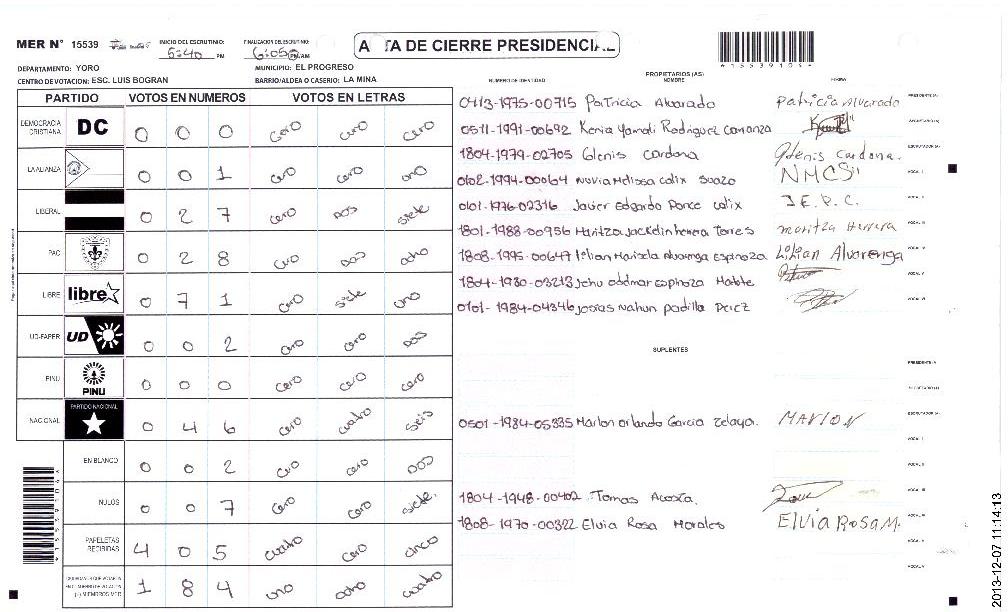 MER N° 15539
INICIO DEL ESCRUTINIO: 5:40 PM
FINALIZACION DEL ESCRUTINIO: 6:05 PM/AM
ACTA DE CIERRE PRESIDENCIAL
DEPARTAMENTO: YORO
MUNICIPIO: EL PROGRESO
CENTRO DE VOTACION: ESC. LUIS BOGRAN
BARRIO/ALDEA O CASERIO: LA MINA
PARTIDO VOTOS EN NUMEROS VOTOS EN LETRAS
DEMOCRACIA CRISTIANA DC 0 0 0 cero cero cero
LA ALIANZA 0 0 1 cero cero uno
LIBERAL 0 2 7 cero dos siete
PAC 0 2 8 cero dos ocho
LIBRE libre 0 7 1 cero siete uno
UD-FAPER UD 0 0 2 cero cero dos
PINU PINU 0 0 0 cero cero cero
NACIONAL PARTIDO NACIONAL 0 4 6 cero cuatro seis
EN BLANCO 0 0 2 cero cero dos
NULOS 0 0 7 cero cero siete
PAPELETAS RECIBIDAS 4 0 5 cuatro cero cinco
1 8 4 uno ocho cuatro
PROPIETARIOS (AS)
NUMERO DE IDENTIDAD NOMBRE FIRMA
0413-1975-00715 Patricia Alvarado Patricia Alvarado PRESIDENTE (A)
0511-1991-00692 Kenia Yamali Rodriguez carranza SECRETARIO (A)
1804-1979-02705 Glenis cardona Glenis Cardona. ESCRUTADOR (A)
0102-1994-00064 Nuvia Melissa calix Suazo NMCS" VOCAL I
0101-1976-02316 Javier Edgardo Ponce calix J.E.P.C. VOCAL II
1801-1988-00956 Maritza Jackelin herrera Torres maritza Herrera VOCAL III
1808-1995-00647 lilian Marisela Alvarenga espinoza Lilian Alvarenga VOCAL IV
1804-1980-03213 espinoza VOCAL V
0101-1984-04346 josias nahun padilla Perez VOCAL VI
SUPLENTES
PRESIDENTE (A)
SECRETARIO (A)
0501-1984-05335 Marlon orlando Garcia zelaya. MARLON ESCRUTADOR (A)
VOCAL I
VOCAL II
1804-1948-00402 Tomas Acosta. VOCAL III
1808-1970-00322 Elvia Rosa Morales ElviA RoSA M. VOCAL IV
VOCAL V
VOCAL VI
2013-12-07 11:14:13